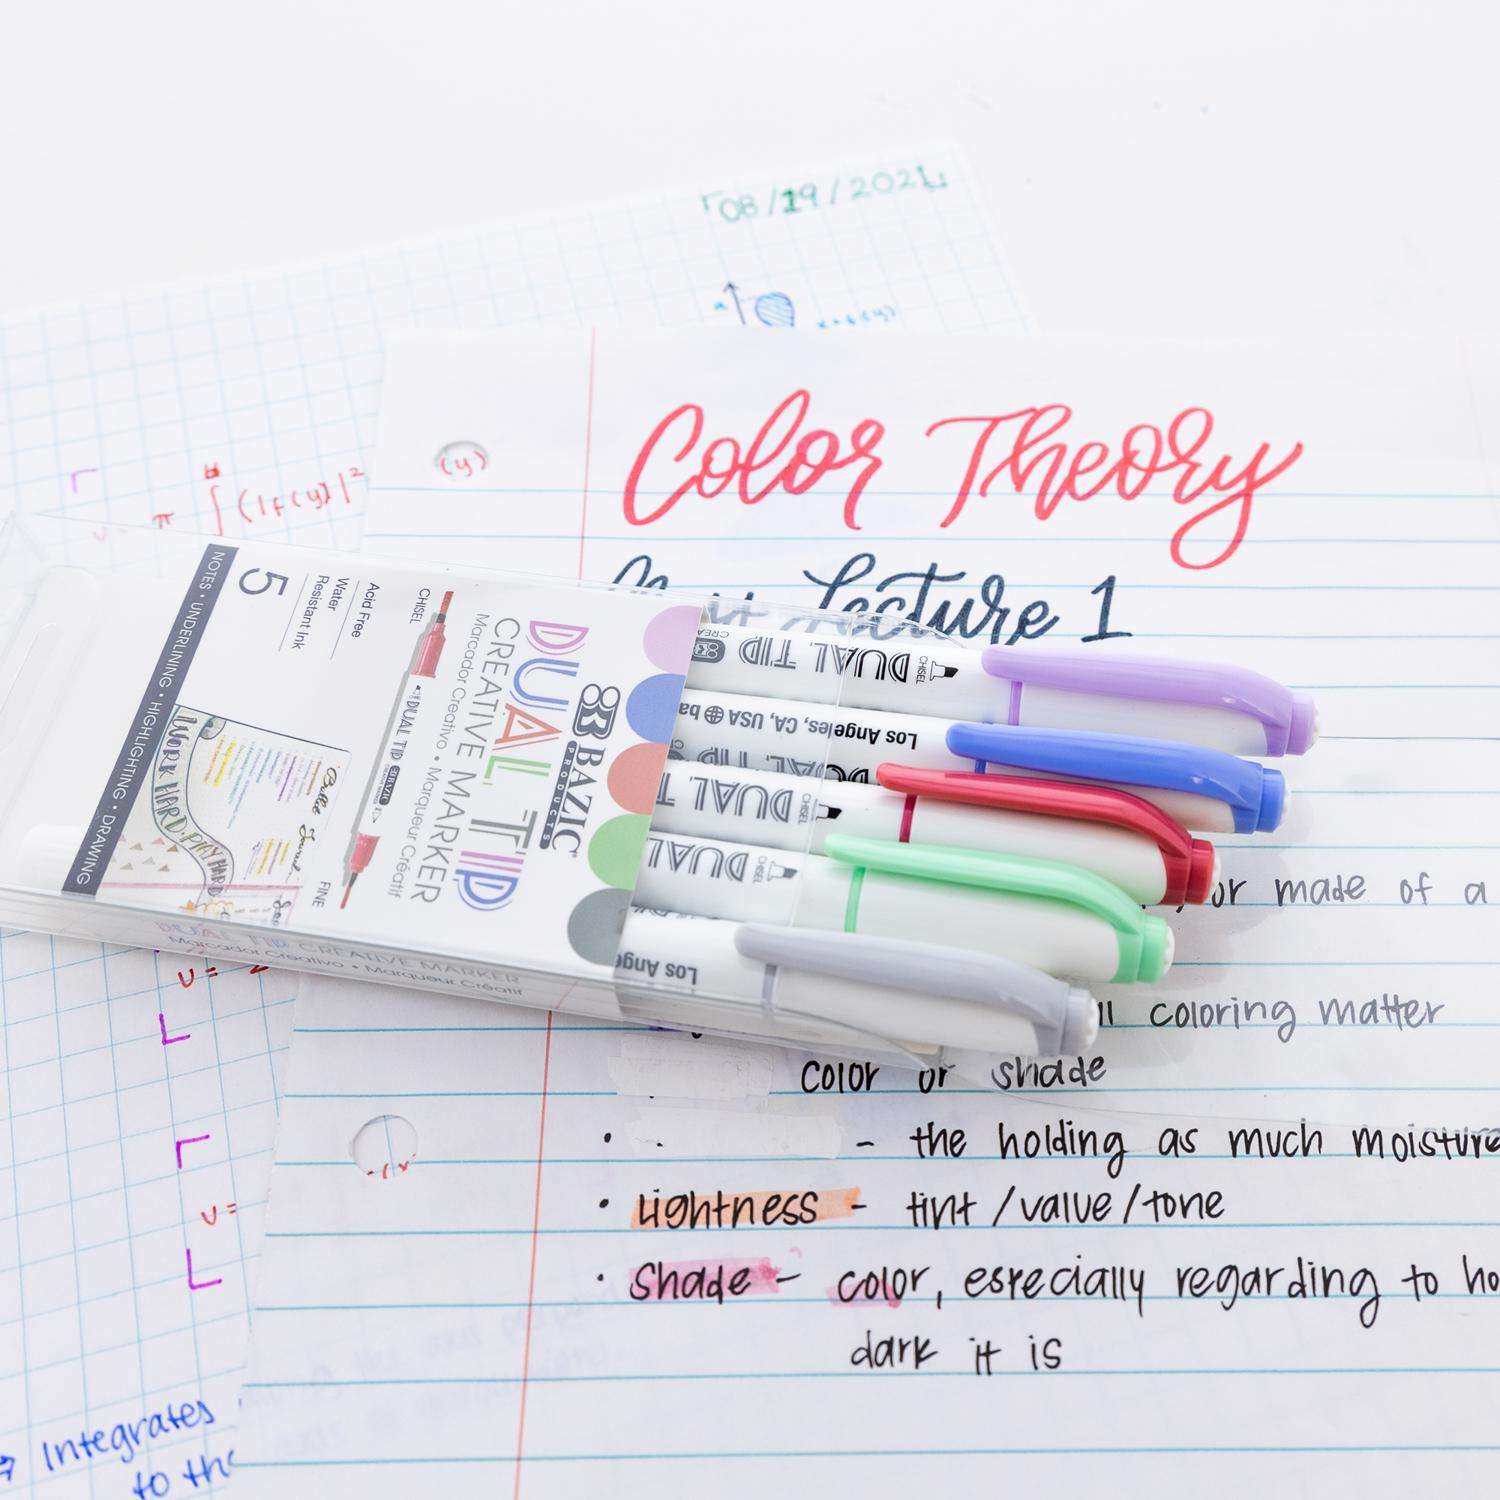 08/19/2021
(y)
Color Theory
Lecture 1
π ∫ (1f(y)|²
NOTES • UNDERLINING • HIGHLIGHTING • DRAWING
5
Water
Resistant Ink
Acid Free
WORK HARD PLAY HARD
CHISEL
DUAL TIP
FINE
Marcador Creativo • Marqueur Créatif
CREATIVE MARKER
DUAL TIP
BAZIC
PRODUCTS
DUAL TIP CREATIVE MARKER
Marcador Creativo • Marqueur Créatif
DUAL TIP CHISEL
Los Angeles, CA, USA
DUAL TIP
DUAL T CHISEL
DUAL CHISEL
Los Ange
or made of a
coloring matter
color or shade
• - the holding as much moisture
• Lightness - tint/value/tone
• Shade - color, especially regarding to ho
dark it is
v = 2
v =
Integrates
to the